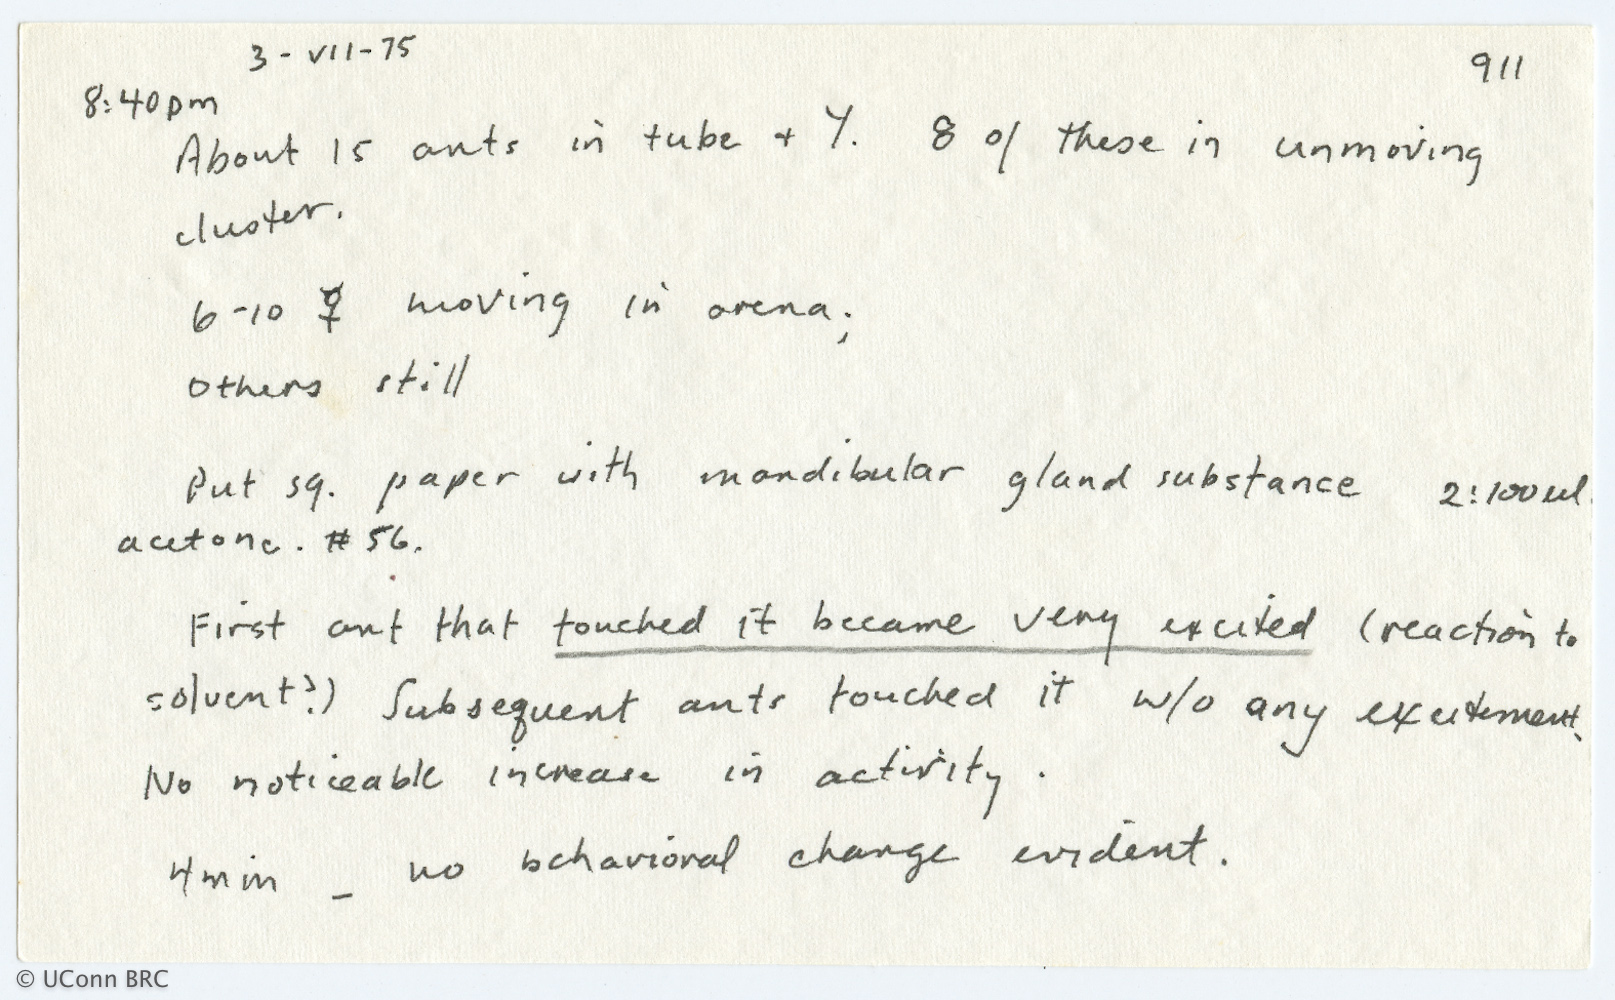 3-VII-75
911
8:40pm
About 15 ants in tube + Y. 8 of these in unmoving
cluster.
6-10 ☿ moving in arena;
Others still
Put sq. paper with mandibular gland substance 2:100ul
acetone. #56.
First ant that touched it became very excited (reaction to
solvent?) Subsequent ants touched it w/o any excitement.
No noticeable increase in activity.
4min _ no behavioral change evident.
© UConn BRC